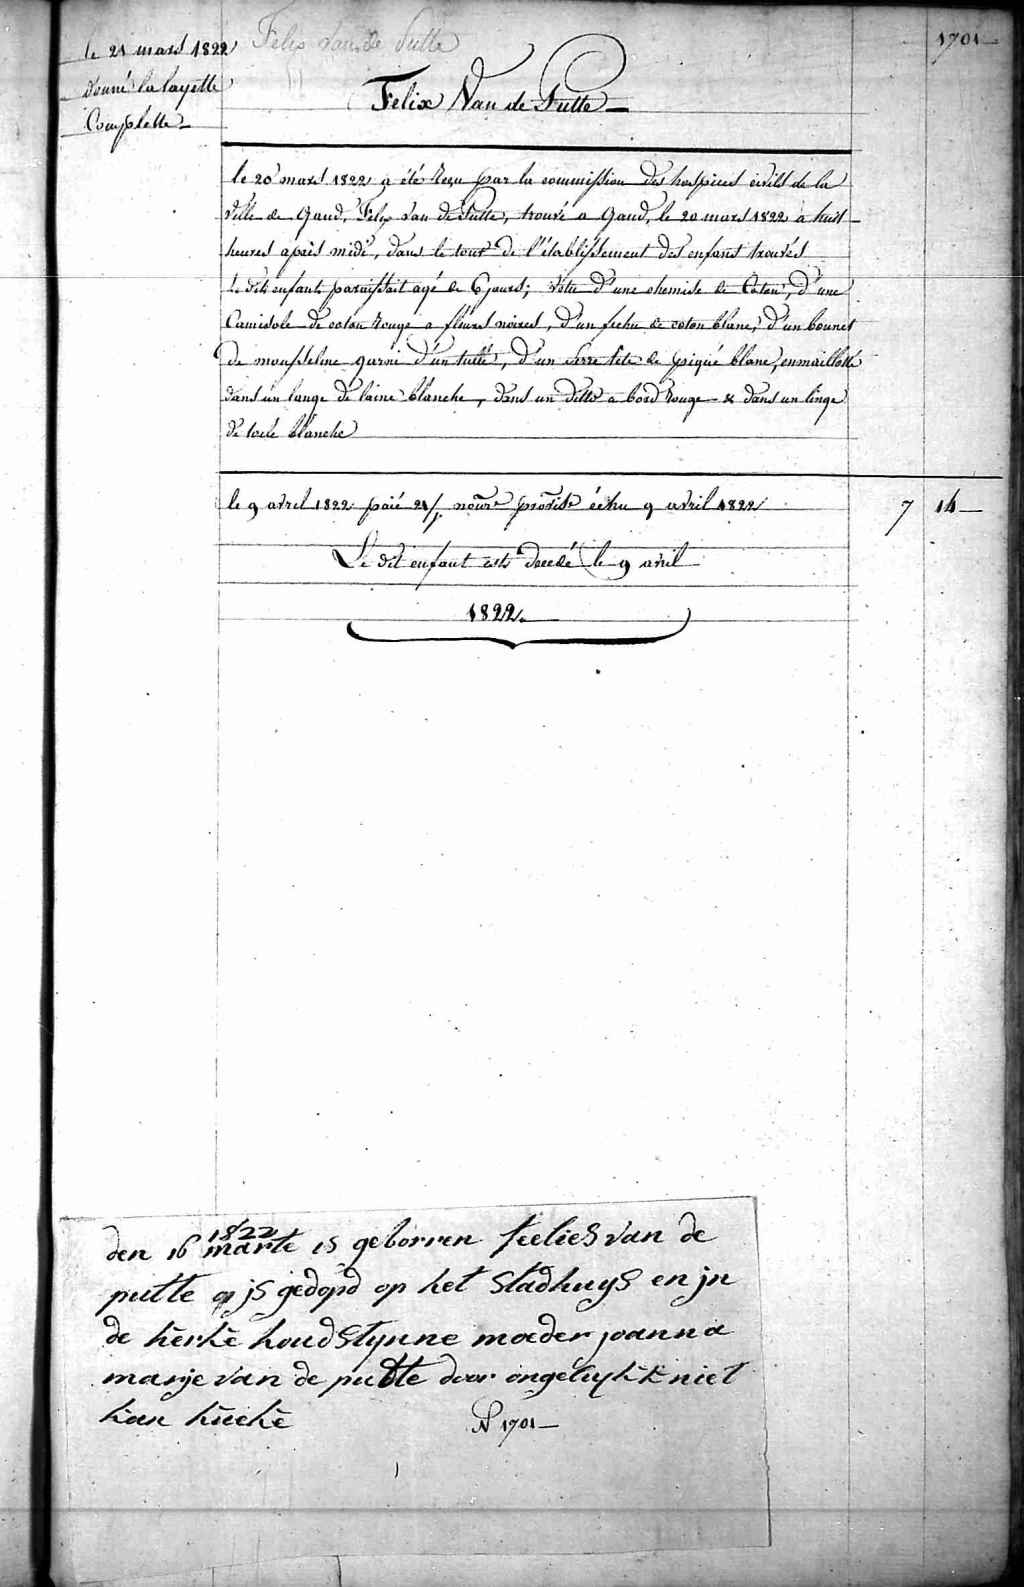 1701
Felix Van de Putte
le 21 mars 1822
donné la layette
Complette
Felix Van de Putte
le 20 mars 1822 a été reçu par la commission des hospices civils de la
ville de Gand, Felix Van de Putte, trouvé a Gand, le 20 mars 1822 a huit
heures après midi, dans le tour de l'établissement des enfans trouvés
le dit enfant paraissait agé de 6 jours; vétu d'une chemise de Coton, d'une
Camisole de coton rouge a fleurs noires, d'un fichu de coton blanc, d'un bonnet
de mousseline garni d'un tulle, d'un serre tête de piqué blanc, enmaillotté
dans un lange de laine blanche, dans un ditto a bord rouge & dans un linge
de toile blanche
le 9 avril 1822 paié 21/j. nourre provise échu 9 avril 1822 7 14
Le dit enfant est decedé le 9 avril
1822.
den 16 1822 marte is geborren feelies van de
putte op js gedopd op het stadhuys en jn
de kerke houdstynne moeder joanna
marije van de putte door ongelyk niet
kan
N 1701